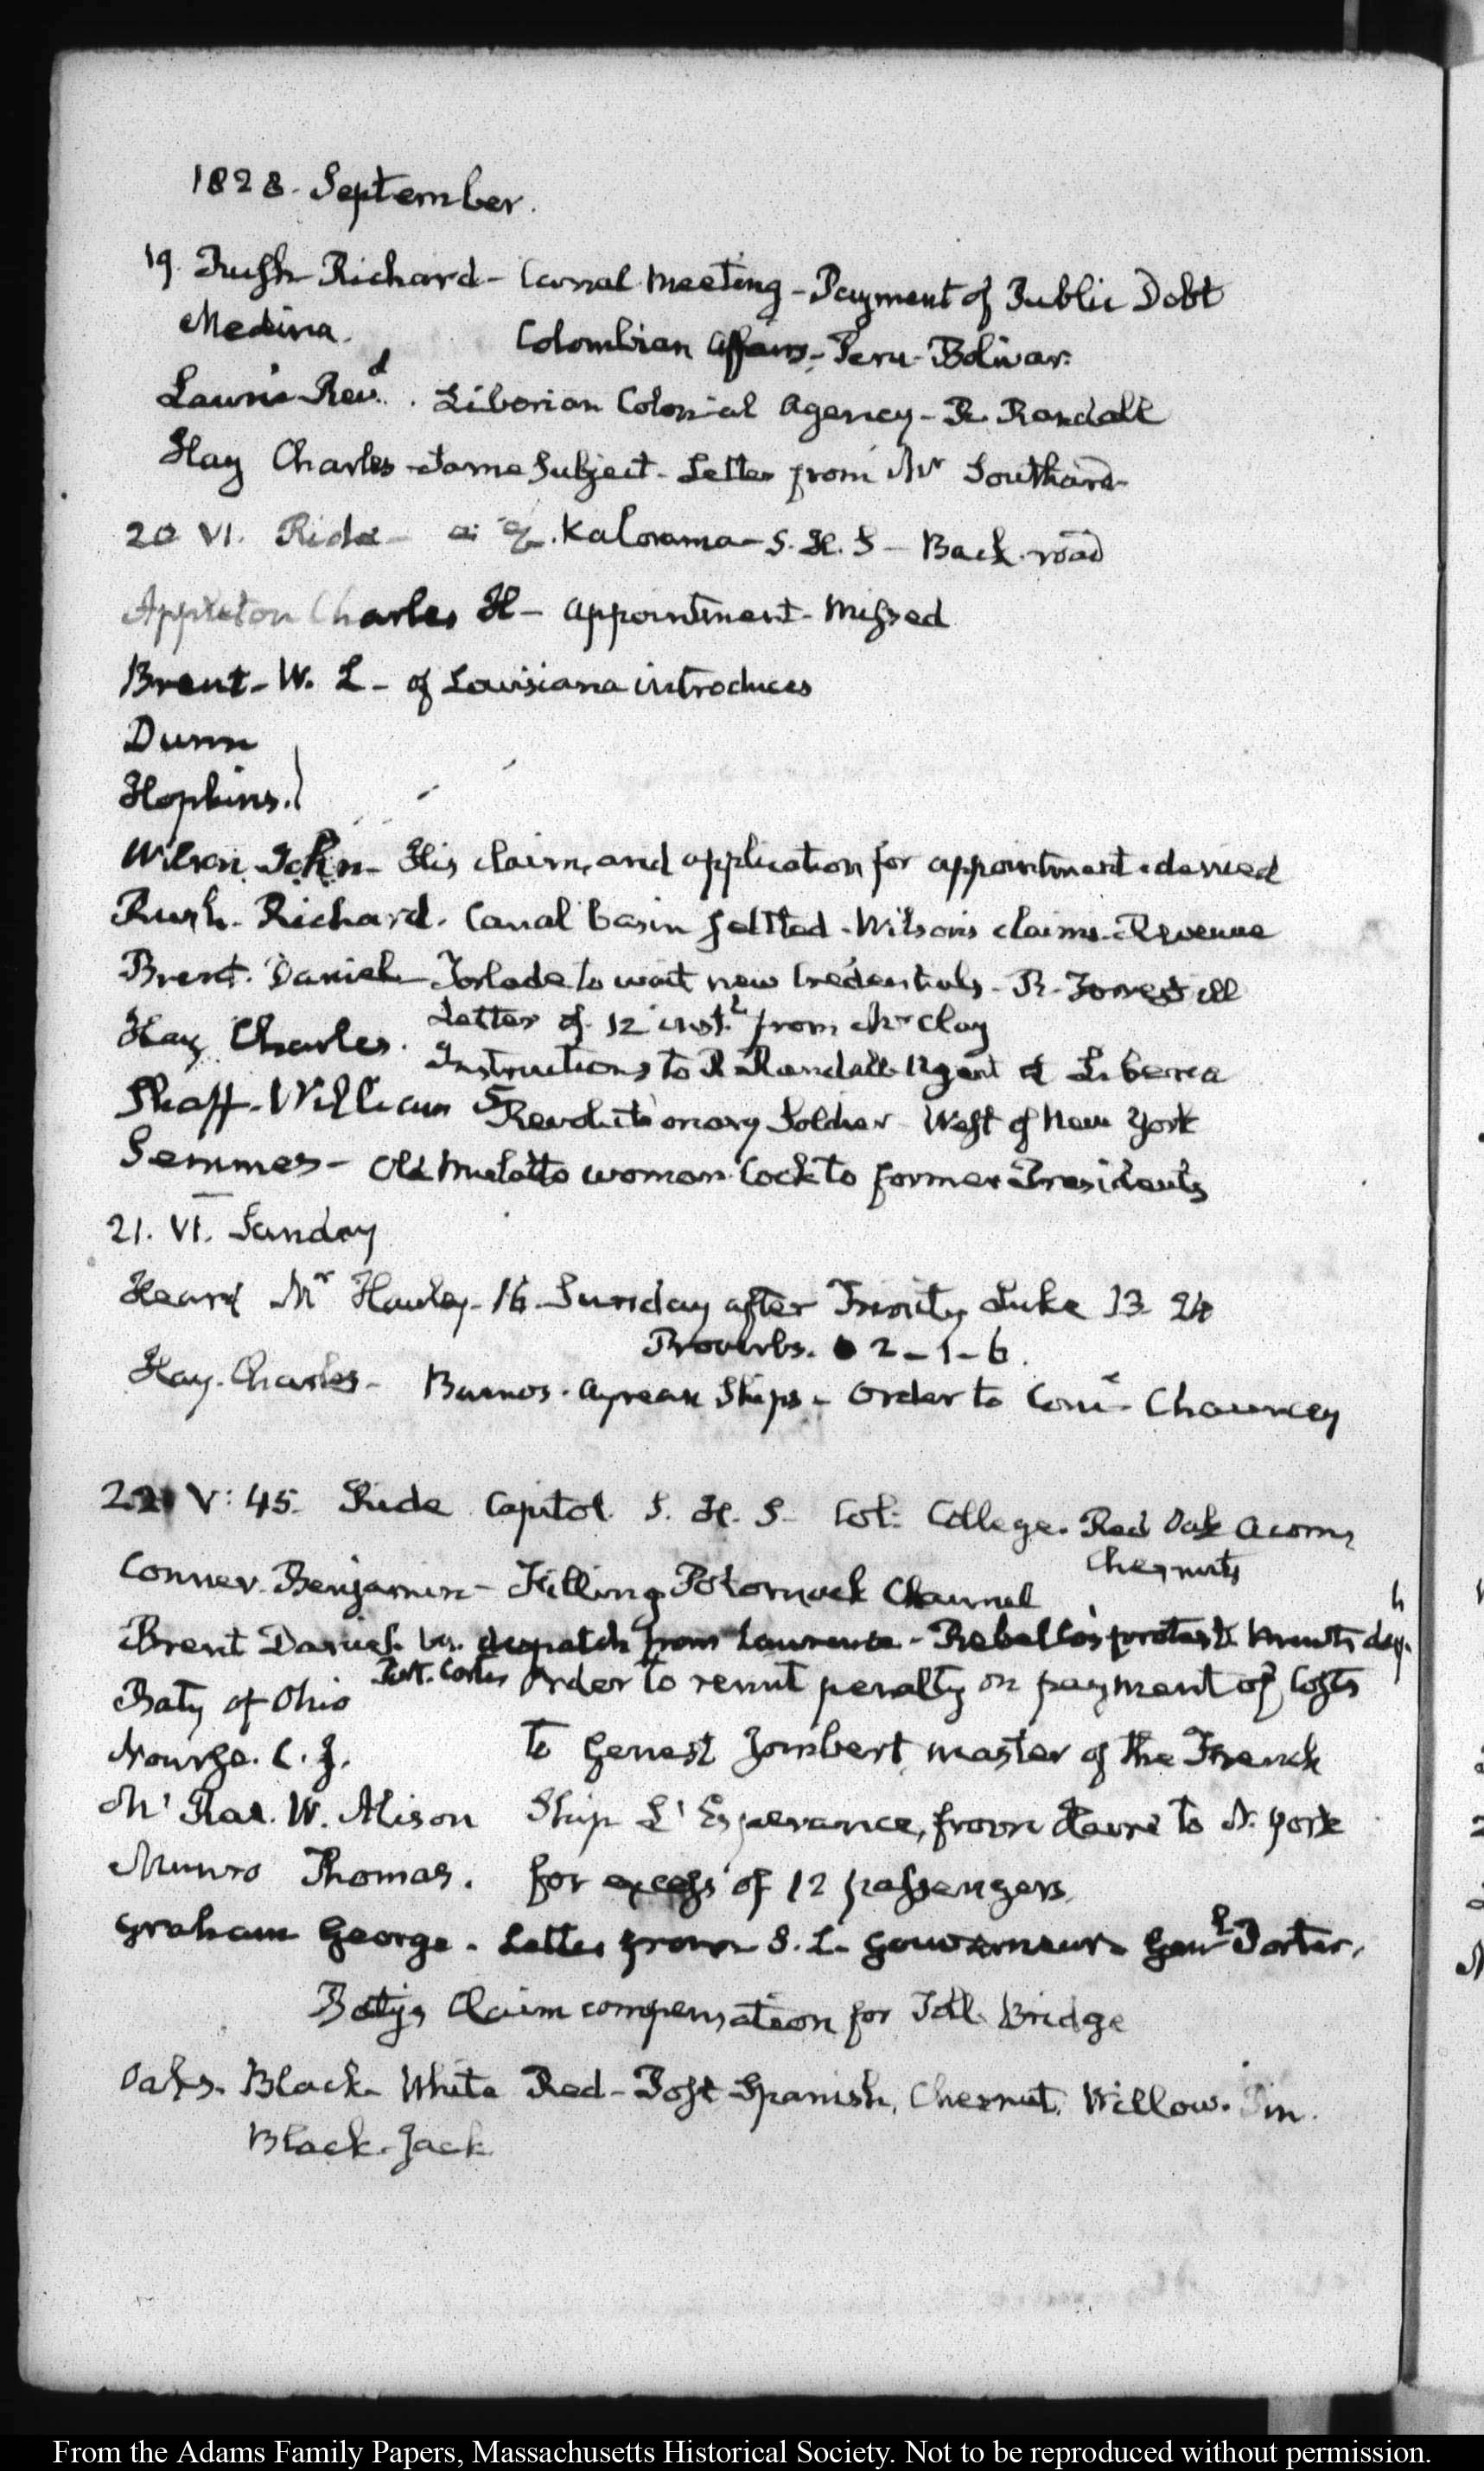 1828. September.
19. Rush Richard - Canal Meeting - Payment of Public Debt
Medina. Colombian Affairs - Peru - Bolivar.
Laurie Revd. Liberian Colonial Agency - R. Randall
Hay Charles - Same Subject - Letter from Mr Southard
20 VI. Ride - Kalorama - S. H. S - Back road
Appleton Charles H - appointment - Missed
Brent - W. L - of Louisiana introduces
Dunn
Hopkins.}
Wilson John - His claim, and application for appointment - denied
Rush. Richard. Canal basin settled - Wilson's claims - Revenue
Brent. Daniel - to wait new Credentials - R. Forrest ill
Letter of 12 instt. from Mr Clay
Hay Charles. Instructions to R Randall Agent at Liberia
Shaff - William Revolutionary Soldier - West of New York
Semmes - Old Mulatto woman Cook to former Presidents
21. VI. Sunday
Heard Mr Hawley - 16 Sunday after Trinity Luke 13 24
Proverbs. 2 - 1 - 6.
Hay. Charles - Buenos. Ayrean Ships - Order to Come Chauncey
22 V: 45. Ride Capitol. S. H. S - Col: College. Red Oak acorns
Chesnuts
Conner Benjamin - Filling Potomack Channel
Brent Daniel despatch from Laurence - Rebello's protest
Port. Cortes
Baty of Ohio Order to remit penalty on payment of Costs
Nourse. C. J. to Genest Jombert, master of the French
Mc Rae. W. Alison Ship L'Esperance, from Havre to N. York
Munro Thomas. for excess of 12 passengers
Graham George. Letter from S. L. Gouverneur - Genl Porter.
Batys Claim compensation for Toll Bridge
Oaks. Black - White Red - Post Spanish, Chesnut. Willow. Pin.
Black-Jack
From the Adams Family Papers, Massachusetts Historical Society. Not to be reproduced without permission.